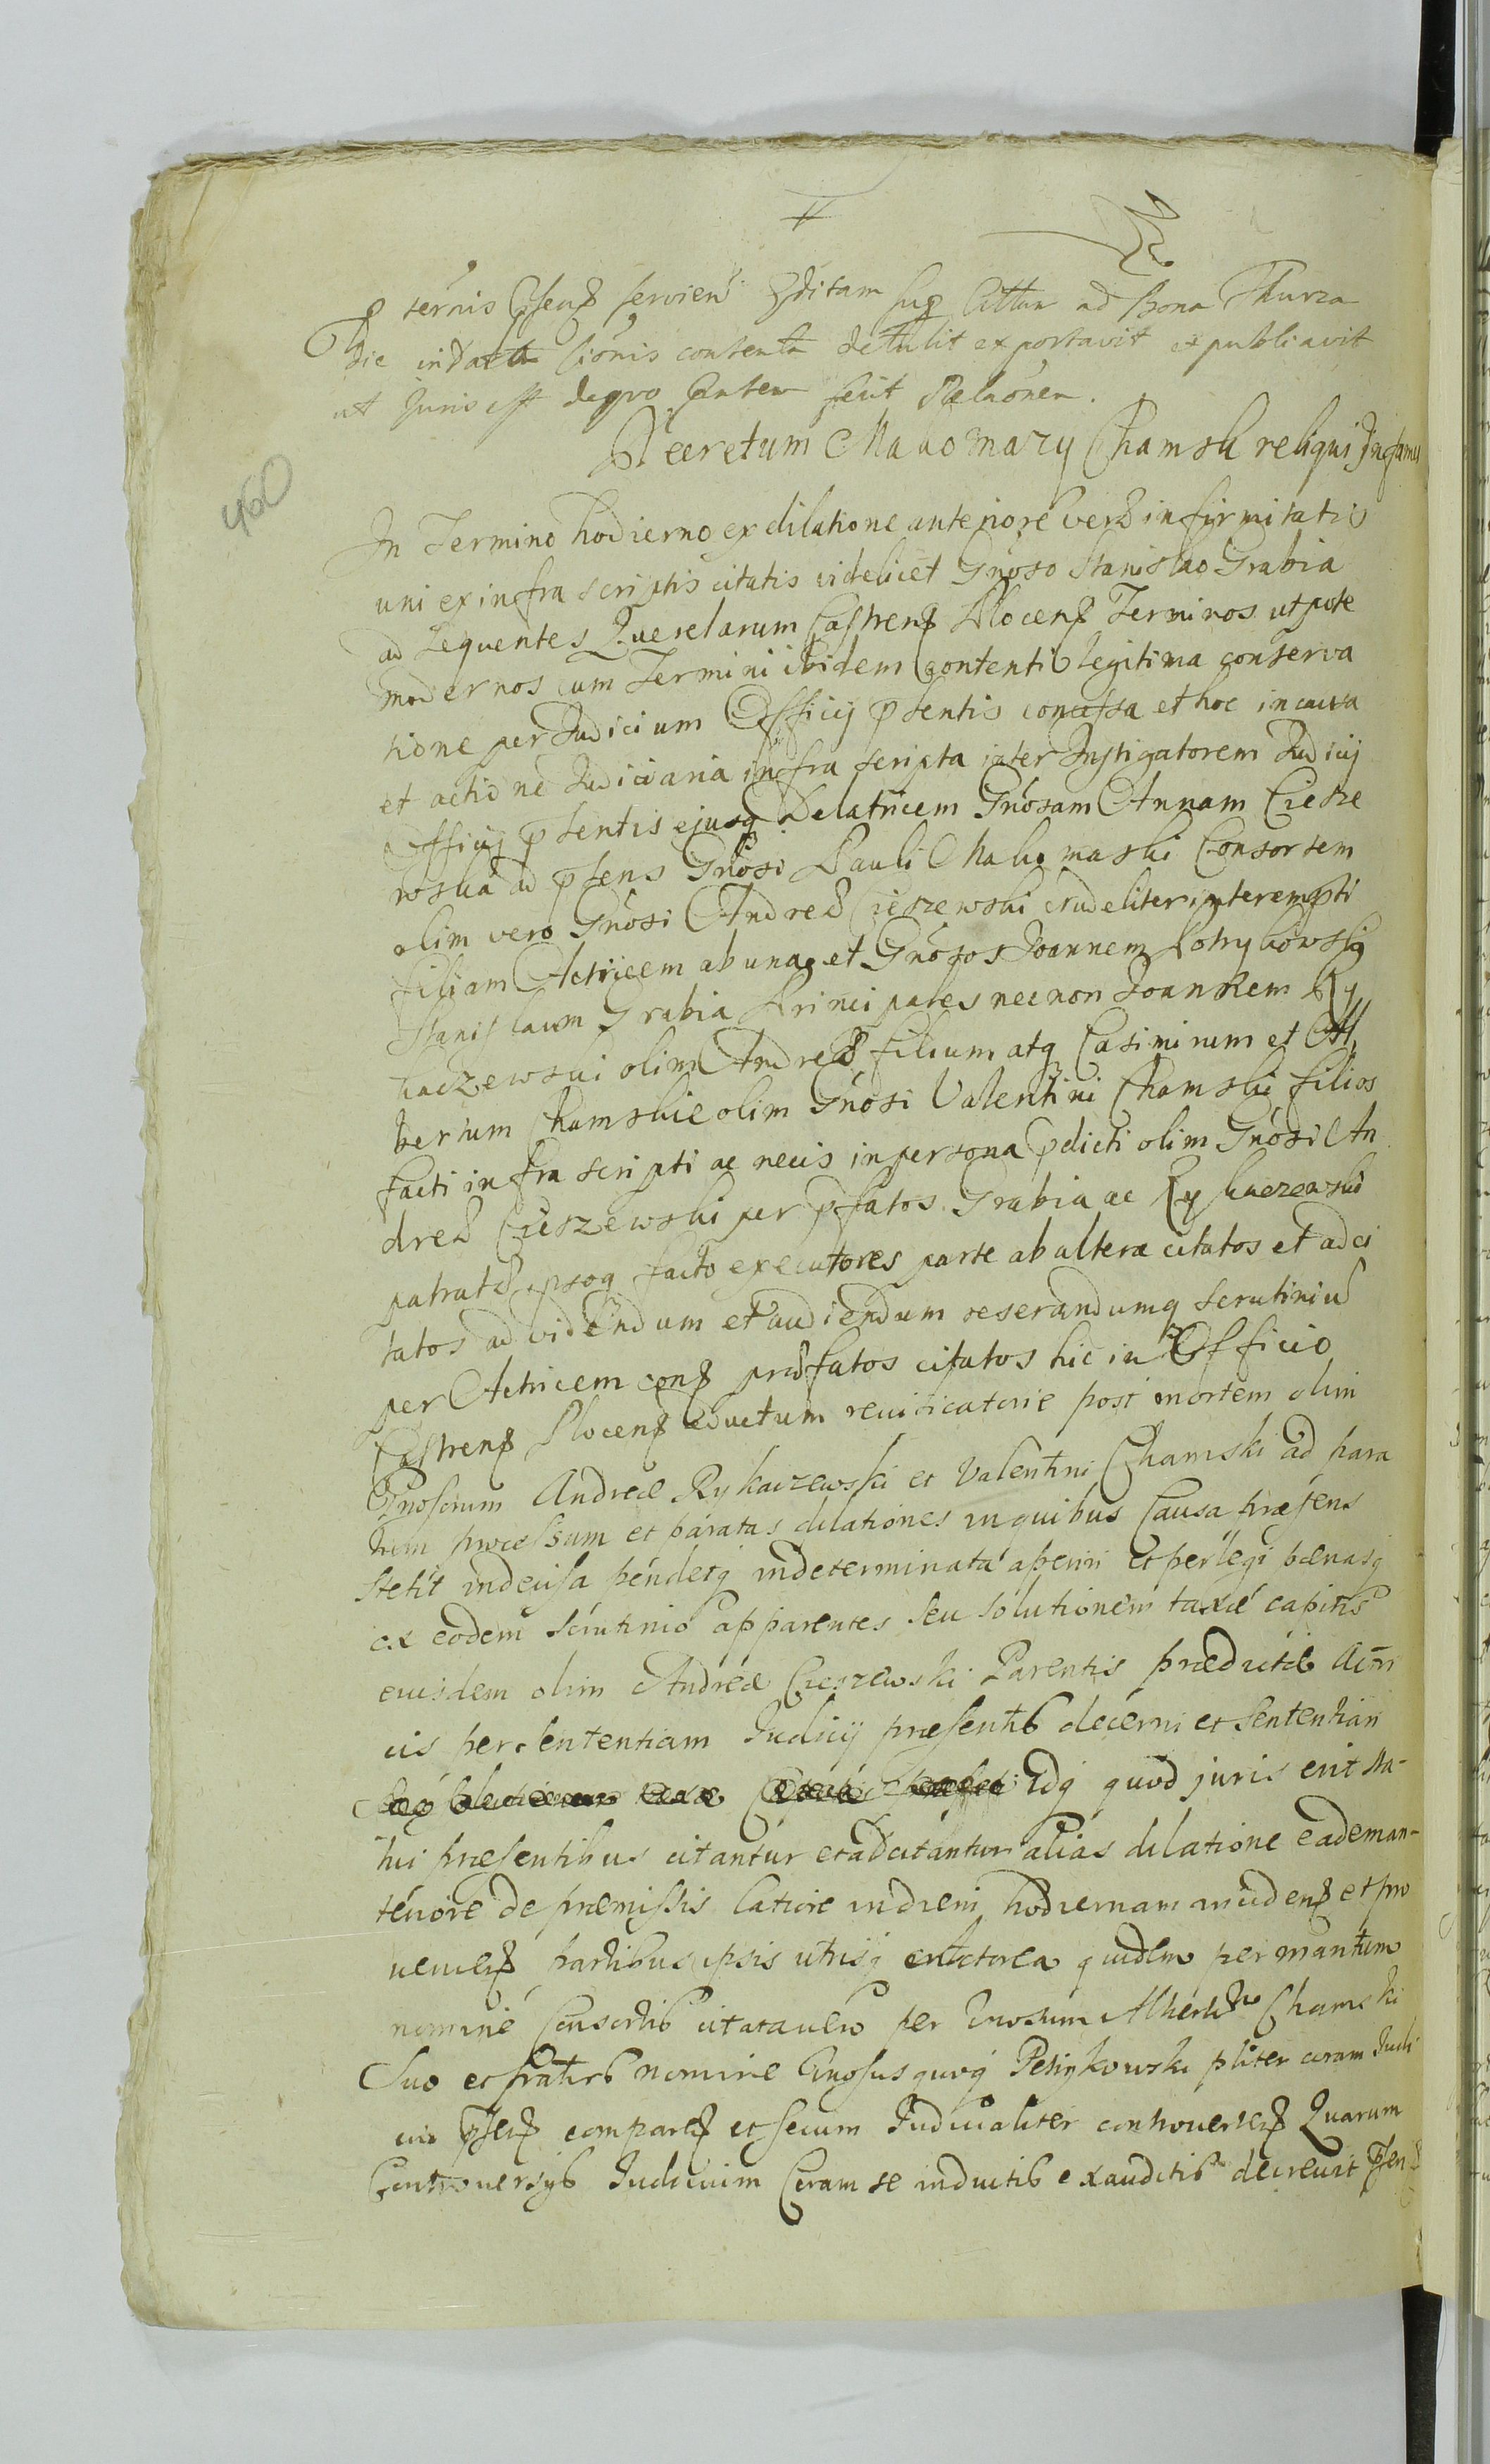 ternis Cksens servien Editam sup Cittan ad Bona Thurza
die indacta cionis contenta detulit exportavit et publicavit
ut Juris est de quo Enter fecit Relaonem.
Decretum Makomazy Chamski reliqui Infamis
460
In Termino hodierno ex dilatione anteriore veræ infirmitatis
uni ex infra scriptis citatis videlicet Gnoso Stanislao Grabia
ad Sequentes Querelarum Castrens Plocens Terminos utpote
modernos cum Termini ibidem contenti legitima conserva
tione per Judicium Officij pntentis concessa et hoc in causa
et actione Judiciaria infra scripta inter Instigatorem Judicij
Officij psentis ejusq Delatricem Gnosam Annam Ciesze
wska ad psens Gnosi Pauli Makomaski Consortem
olim vero Gnosi Andreæ Cieszewski crudeliter interempti
filiam Actricem ab una et Gnosos Joannem Potrykowski
Stanislaum Grabia Principales necnon Joannem Ry
kaczewski olim Andreæ filium atq Casimirum et Al
bertum Chamskie olim Gnosi Valentini Chamski filios
facti infra scripti ac necis in persona pdicti olim Gnosi An
dreæ Cieszewski per pfatos Grabia ac Rykaczewski
patratæ ipsoq facto executores parte ab altera citatos et adci
tatos ad videndum et audiendum reserandumq scrutiniū
per Actricem cons præfatos citatos hic in Officio
Castrens Plocens eductum reuificatorie post mortem olim
Gnosorum Andreæ Rykaczewski et Valentini Chamski ad para
tum processum et paratas dilationes in quibus Causa præsens
stetit indecisa pendetq indeterminata aperiri et perlegi pænasq
ex eodem scrutinio apparentes seu solutionem taxæ capitis
eiusdem olim Andreæ Cieszewski Parentis prædictæ Actri
cis per sententiam Judicij præsentis decerni et sententiari
idq quod juris erit sta-
tui præsentibus citantur et adcitantur alias dilatione eademan-
teriore de præmissis latiore in diem hodiernam incidens et pro
veniens partibus ipsis utrisq actorea quidem per maritum
nomine Consortis citata vero per Gnosum Albertum Chamski
Suo et fratris nomine Gnosus quoq Petrykowski pliter coram Judi
cio psens comparens et secum Judicialiter controvertens Quarum
Controversijs Judicium Coram se inductis exauditis decrevit psen